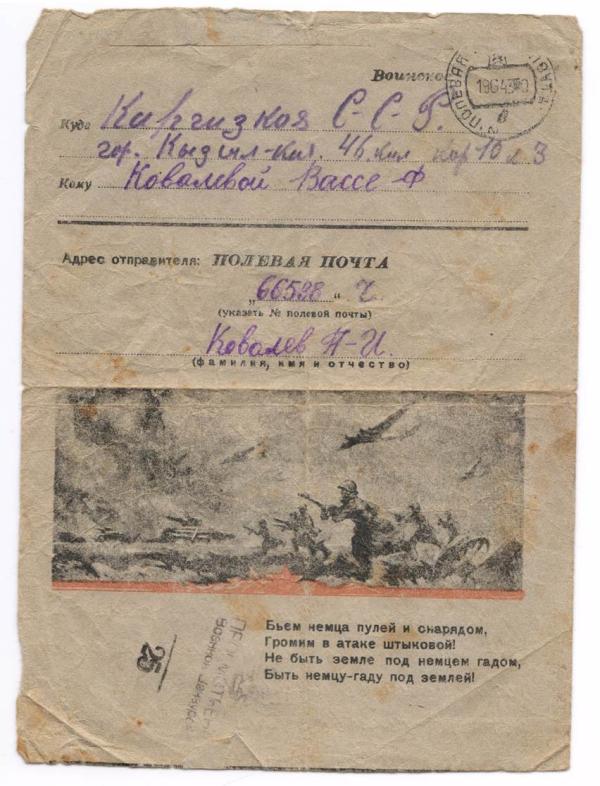 Воинское
ПОЛЕВАЯ ПОЧТА
19643
Куда Киргизкая С-С-Р.
гор. Кызыл-Кия. 46 Кил кор 10 л 3
Кому Ковалевой Вассе Ф
Адрес отправителя: ПОЛЕВАЯ ПОЧТА
„66528“ Ч.
(указать № полевой почты)
Ковалев П-И.
(фамилия, имя и отчество)
Бьем немца пулей и снарядом,
Громим в атаке штыковой!
Не быть земле под немцем гадом,
Быть немцу-гаду под землей!
25